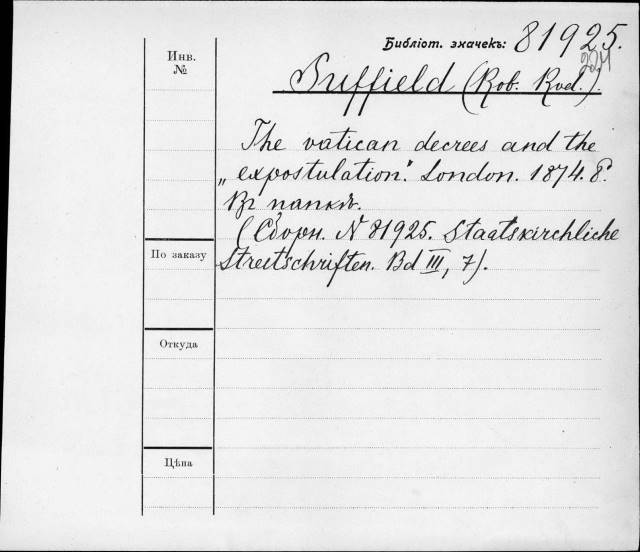 Библіот. значекъ: 81925.
224
Инв.
№
Suffield (Rob. Rud.).
The vatican decrees and the
„expostulation". London. 1874. 8°.
Въ папкѣ.
(Сборн. N 81925. Staatskirchliche
Streitschriften. Bd III, 7).
По заказу
Откуда
Цѣна